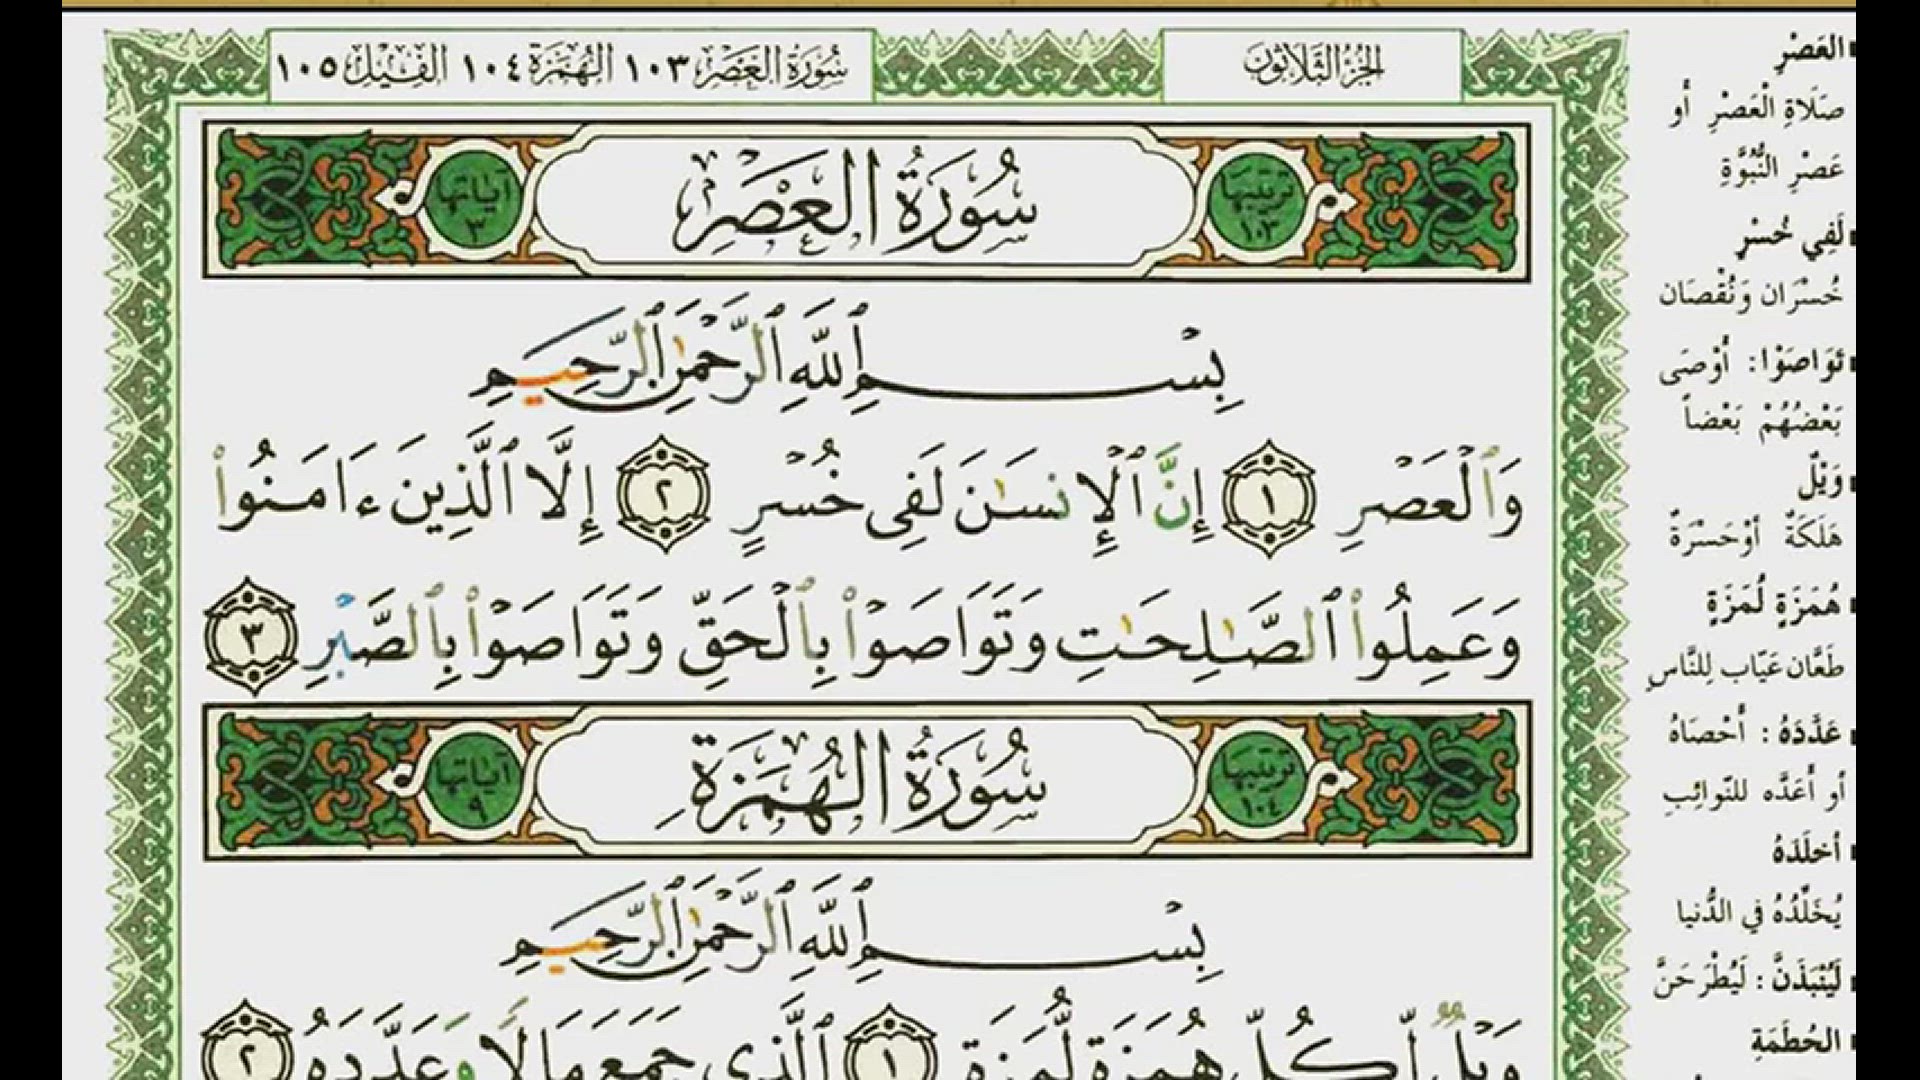 الجزء الثلاثون
سورة العصر ١٠٣ الهمزة ١٠٤ الفيل ١٠٥
ترتيبها ١٠٣
سُورَةُ العَصْرِ
آياتها ٣
بِسْمِ ٱللَّهِ ٱلرَّحْمَٰنِ ٱلرَّحِيمِ
وَٱلْعَصْرِ ١ إِنَّ ٱلْإِنسَٰنَ لَفِى خُسْرٍ ٢ إِلَّا ٱلَّذِينَ ءَامَنُوا۟
وَعَمِلُوا۟ ٱلصَّٰلِحَٰتِ وَتَوَاصَوْا۟ بِٱلْحَقِّ وَتَوَاصَوْا۟ بِٱلصَّبْرِ ٣
ترتيبها ١٠٤
سُورَةُ الهُمَزَةِ
آياتها ٩
بِسْمِ ٱللَّهِ ٱلرَّحْمَٰنِ ٱلرَّحِيمِ
وَيْلٌ لِّكُلِّ هُمَزَةٍ لُّمَزَةٍ ١ ٱلَّذِى جَمَعَ مَالًا وَعَدَّدَهُ ٢
العَصْرِ
صَلَاةِ الْعَصْرِ أو
عَصْرِ النُّبُوَّةِ
لَفِي خُسْرٍ
خُسْرَان وَنُقْصَان
تَوَاصَوْا: أَوْصَى
بَعْضُهُمْ بَعْضاً
وَيْلٌ
هَلَكَةٌ أَوْحَسْرَةٌ
هُمَزَةٍ لُمَزَةٍ
طَعَّان عَيّاب لِلنَّاسِ
عَدَّدَهُ: أَحْصَاهُ
أو أَعَدَّه للنّوائِبِ
أَخلَدَهُ
يُخَلِّدُهُ في الدُّنيا
لَيُنْبَذَنَّ: لَيُطْرَحَنَّ
الحُطَمَةِ